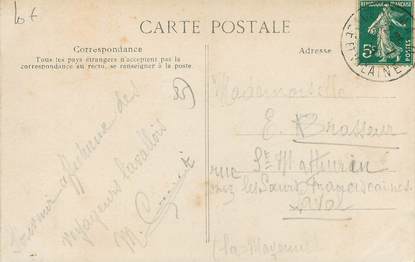 10€
CARTE POSTALE
Correspondance
Tous les pays étrangers n'acceptent pas la
correspondance au recto, se renseigner à la poste.
Adresse
RÉPUBLIQUE FRANÇAISE
5c
POSTES
35
Souvenir affectueux des
voyageurs lavallois
M.
Mademoiselle
E. Brasseur
rue St Mathurin
chez les Sœurs Franciscaines
Laval
(la Mayenne)